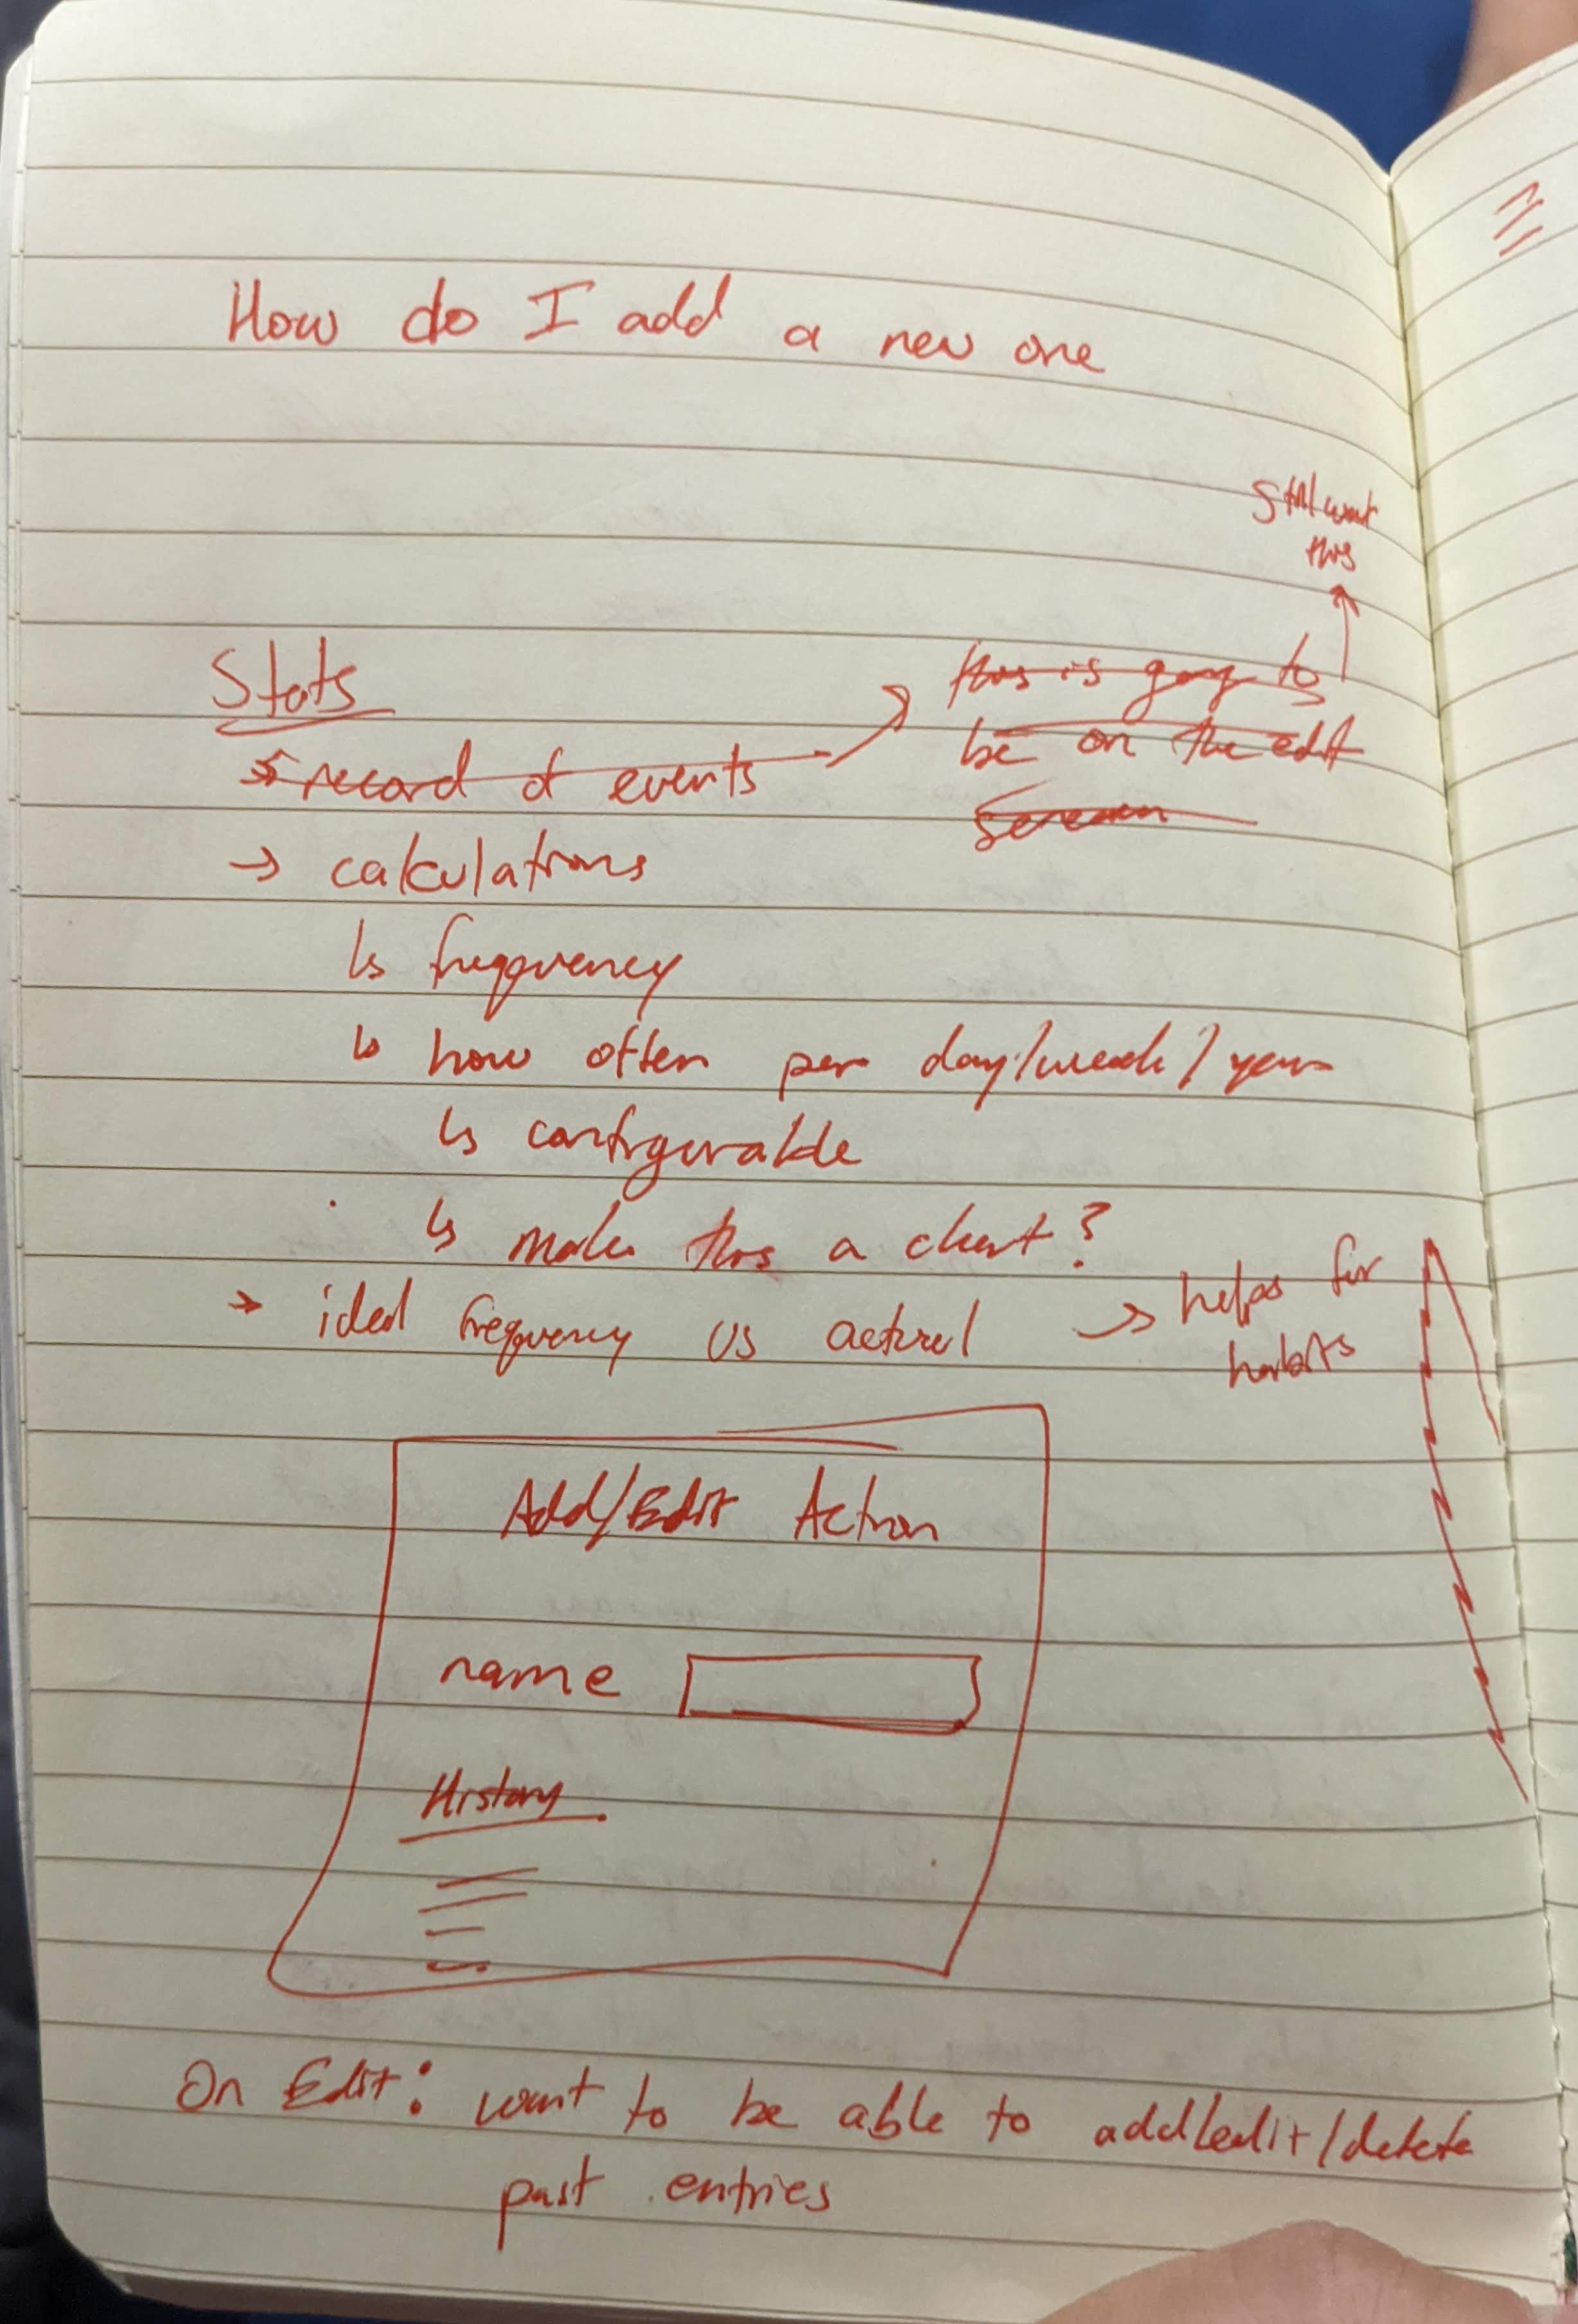 How do I add a new one
Still want
this
Stats
↳ record of events → this is going to
be on the edit
screen
→ calculations
↳ frequency
↳ how often per day/week/year
↳ configurable
↳ make this a chart?
→ ideal frequency vs actual → helps for
habits
Add/Edit Action
name
History
On Edit: want to be able to add/edit/delete
past entries